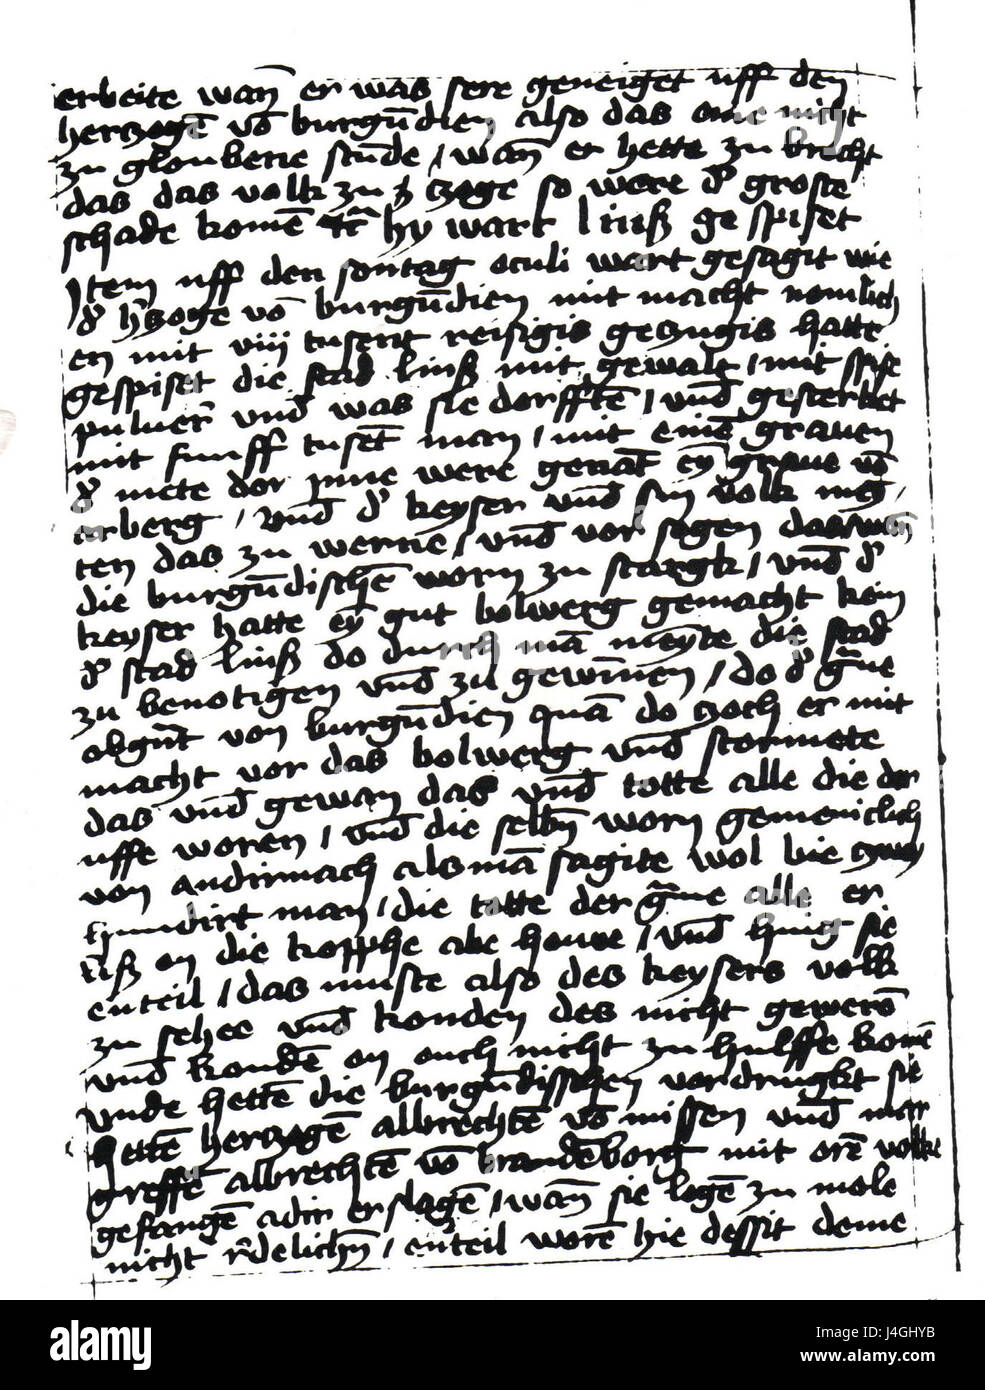 erbeite wan̄ er was sere geneiget uff den
hertzogē vō burgūdien also das ome nicht
zu gloubene stūde / wan̄ er hette zu bricht
das das volk zu tzoge so were d' groste
schade komē hy wart linß gespiset
Item uff den sontag oculi wart gesagit wie
d' h'tzoge vō burgūdien mit macht nemlich
en mit viij tusent reisigis getzugis hatte
gespiset die stad linß mit gewalt / mit spise
puluer und was sie dorfftē / und gesterket
mit funff tusēt man / mit einē grauen
d' mete dor jnne were genāt eȳ graue vō
arberg / und d' keyser und sin volk
ten das zu werne / und vor sogen das wan̄
die burgūdischē worn zu stargk / und d'
keyser hatte eȳ gut bolwerg gemacht kein
d' stad linß do durch mā meynte die stad
zu benotigen und zu gewīnen / do d'
von burgūdien quā do tzoch er mit
macht vor das bolwerg und stormete
das und gewan das und totte alle die dor
uffe woren / und die selbn worn gemeinclich
von andirnach alsmā sagite wol bie tzwey
hundirt man / die totte der alle er
liß on die kopphe abe houwe / und hing sie
enteil / das muste also des keysers volk
zu sehee und konden des nicht gewerē
und kondē on ouch nicht zu hulffe komē
unde hettē die burgūdisschen vordrungkt sie
hettē hertzogē albrechtē vō missen und mar
greffē albrechtē vō brandēborg mit orē volke
gefangē adir erslagē / wan̄ sie logē zu mole
nicht / enteil worē hie dessit deme
alamy
Image ID: J4GHYB
www.alamy.com